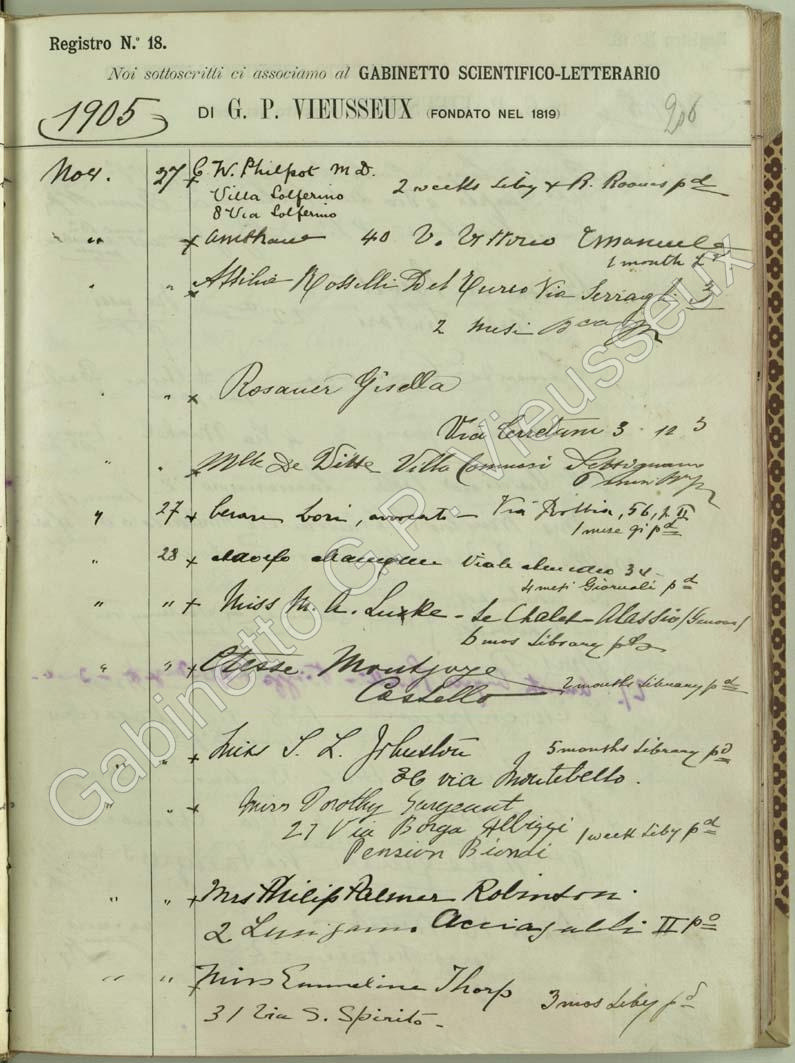 Registro N.º 18.
Noi sottoscritti ci associamo al GABINETTO SCIENTIFICO-LETTERARIO
1905 DI G. P. VIEUSSEUX (FONDATO NEL 1819) 206
Nov. 27 x C. W. Philpot M.D.
Villa Solferino 2 weeks Liby & R. Rooms pd
8 Via Solferino
" x 40 V. Vittorio Emanuele
1 month
" " x Rosselli Del Turco Via Serragli 3
2 mesi
" " x Rosauer Gisella
Via Cerretani 3
" " x Mlle De Villa Settignano
" 27 x Cesare avvocato - Via 56, p. II
1 mese pd
" 28 x Adolfo Viale
4 mesi Giornali pd
" " x Miss M. A. Luxke - Le Chalet - Alassio (Genova)
6 mos Library pd
" " x Ctesse Montjoye
Castello 2 months Library pd
" " x Miss S. L. Johnston 5 months Library pd
36 via Montebello.
" " x Miss Dorothy Sargeant
27 Via Borgo Albizzi 1 week Liby pd
Pension Biondi
" " x Mrs Philip Palmer Robinson.
2 Lungarno Acciajuoli II po
" " x Miss Emmeline Thorp 3 mos Liby pd
31 Via S. Spirito -
Gabinetto G.P. Vieusseux